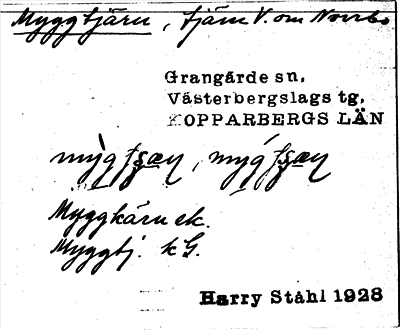 Myggtjärn, tjärn V. om Norrbo
Grangärde sn,
Västerbergslags tg,
KOPPARBERGS LÄN
Myggkärn ek.
Myggtj. kG.
Harry Ståhl 1928